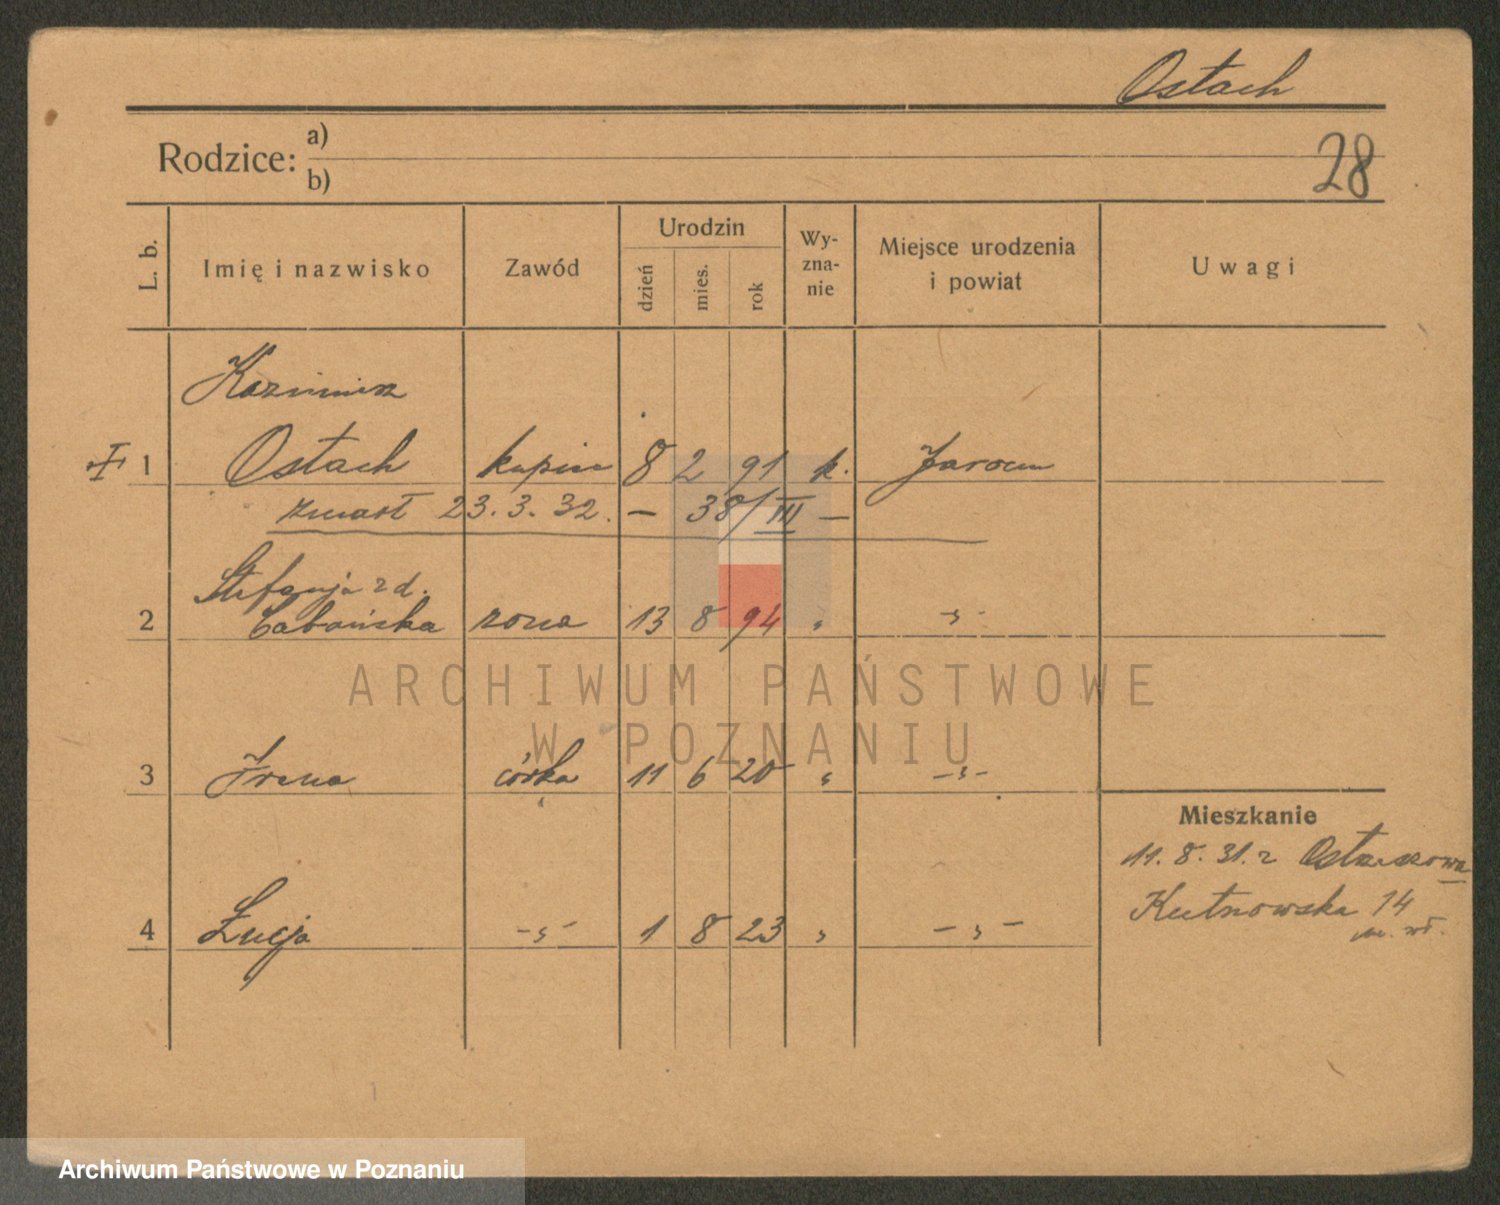 Ostach
Rodzice: a)
b)
28
L. b.
Imię i nazwisko
Zawód
Urodzin
dzień
mies.
rok
Wy-
zna-
nie
Miejsce urodzenia
i powiat
Uwagi
Kazimierz
1 Ostach kupiec 8 2 91 k. Jarocin
zmarł 23.3.32. — 38/III —
Stefanja z d.
2 Cabańska żona 13 8 94 " -"-
3 Irena córka 11 6 20 " -"-
4 Łucja -"- 1 8 23 " -"-
Mieszkanie
11.8.31. z
Kutnowska 14
ARCHIWUM PAŃSTWOWE
W POZNANIU
Archiwum Państwowe w Poznaniu